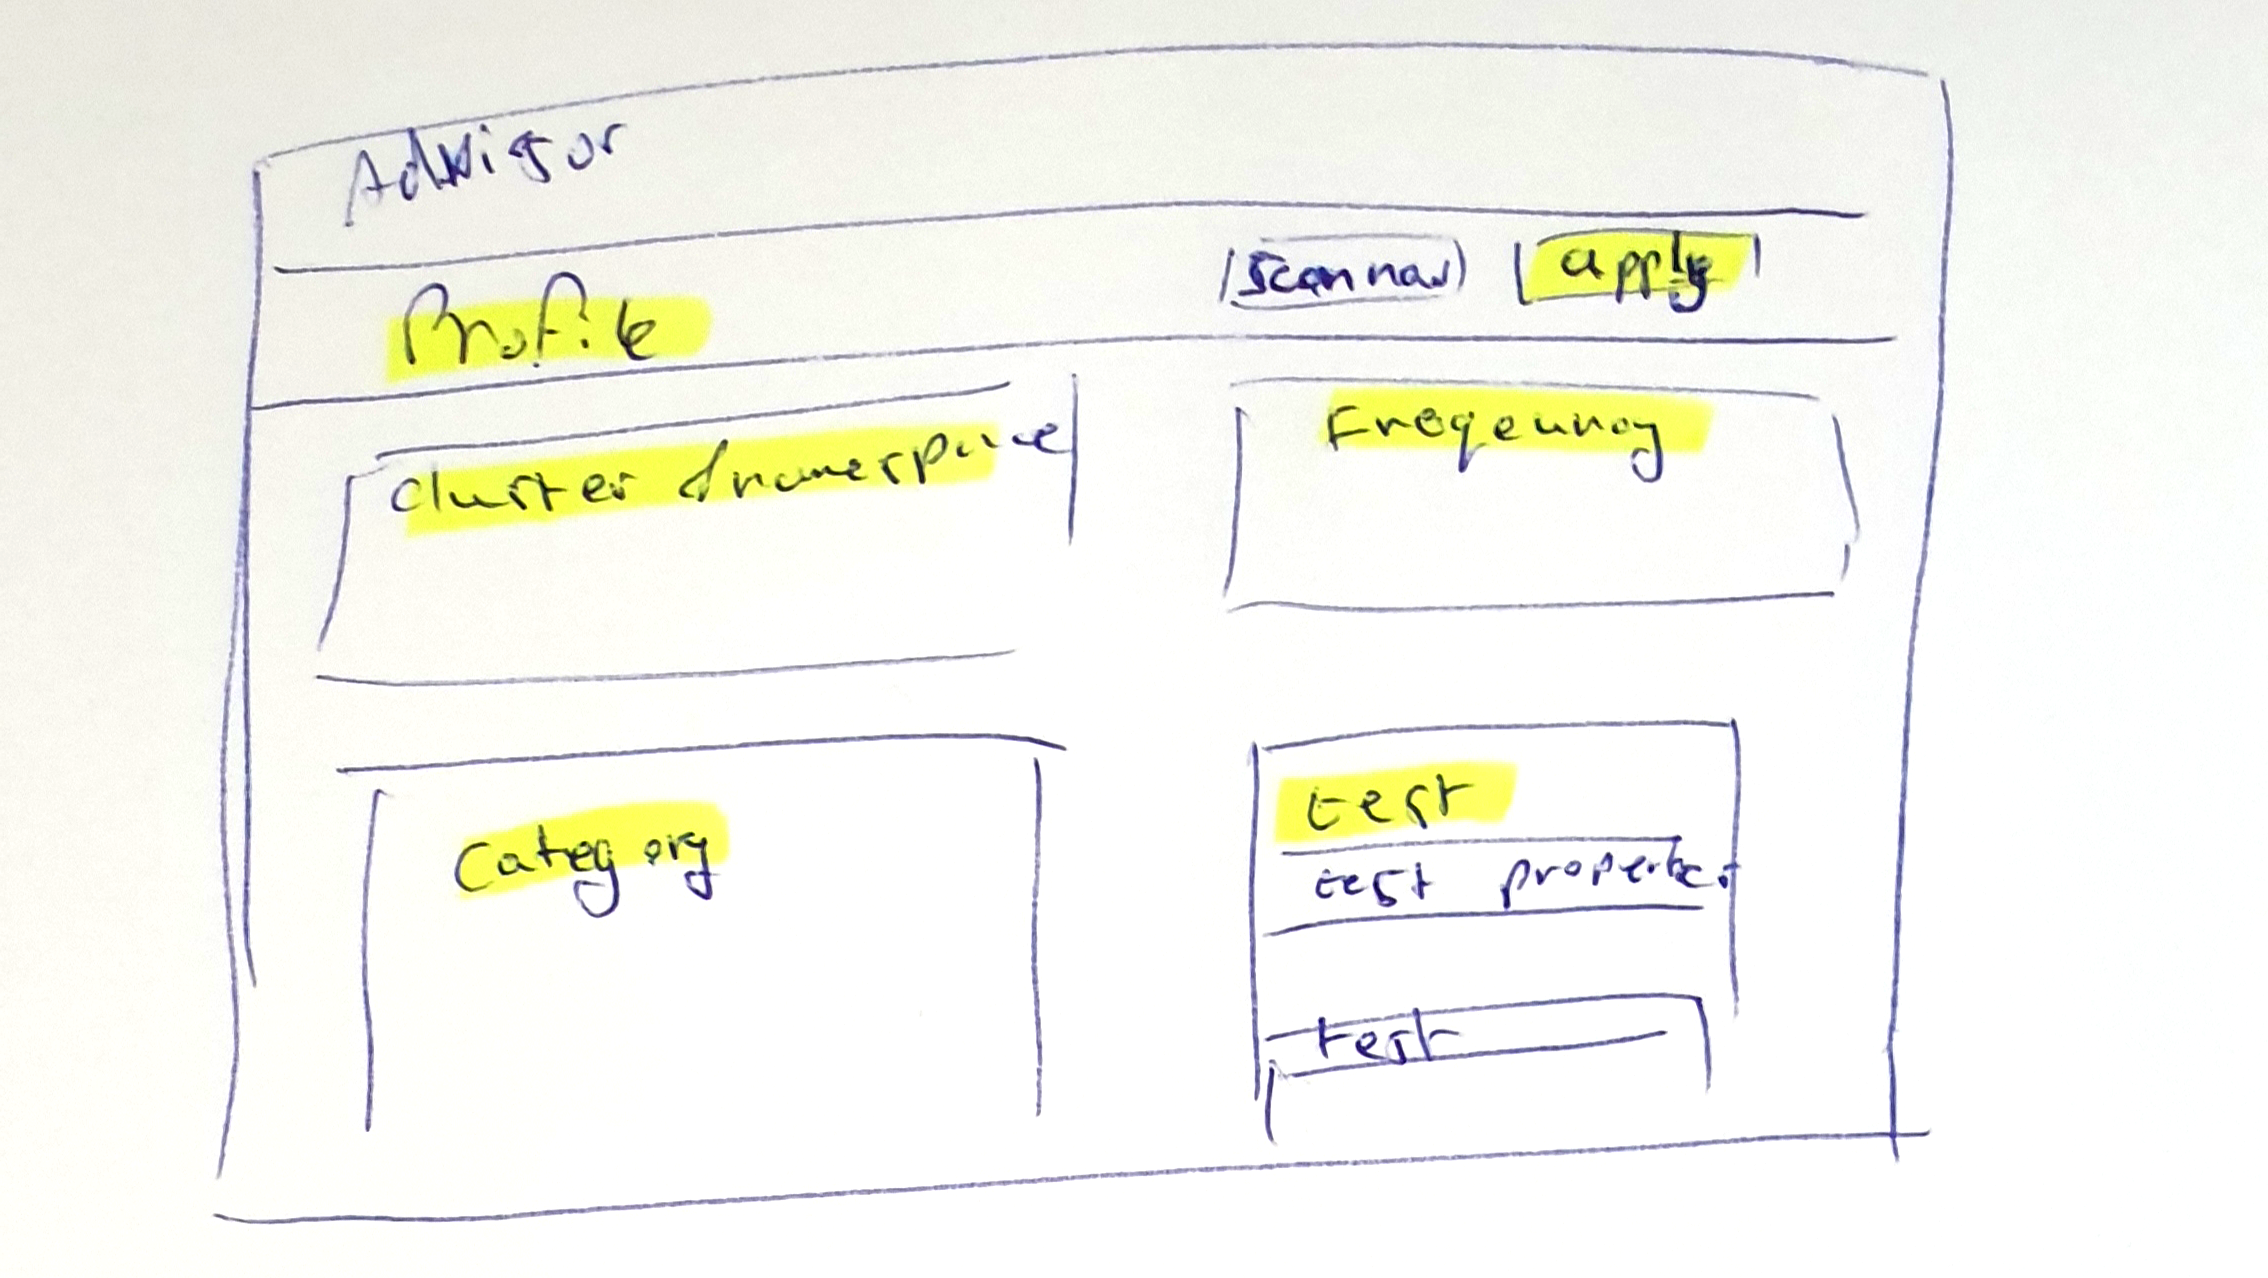 Advisor
Profile scan now apply
cluster & namespace Freqeuncy
Category test
test properties
test